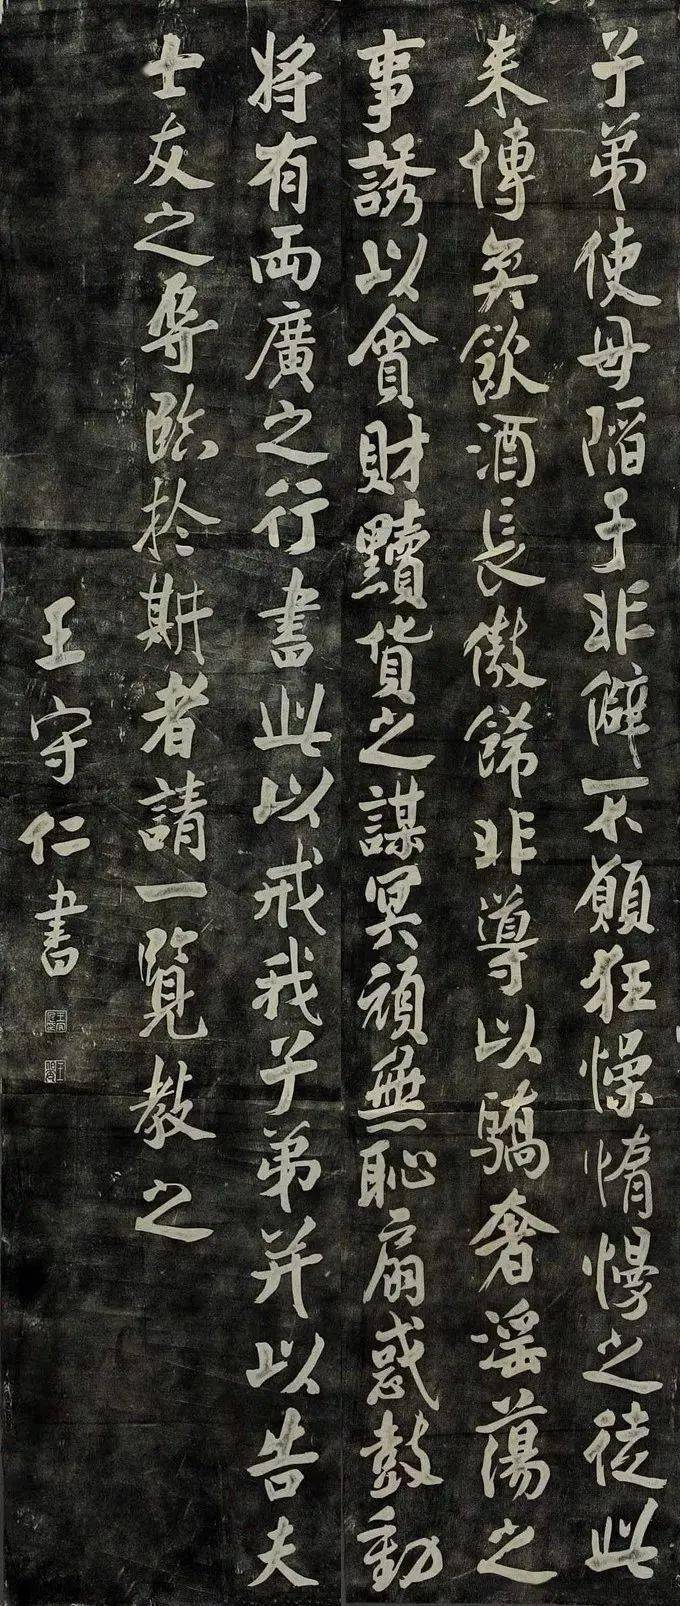 子弟使毋陷于非僻不願狂懆惰慢之徒此
来愽奕飲酒長傲飾非導以驕奢淫蕩之
事誘以貪財黷貨之謀冥頑無恥扇惑鼓動
将有兩廣之行書此以戒我子弟并以告夫
士友之辱臨於斯者請一覽教之
王守仁書